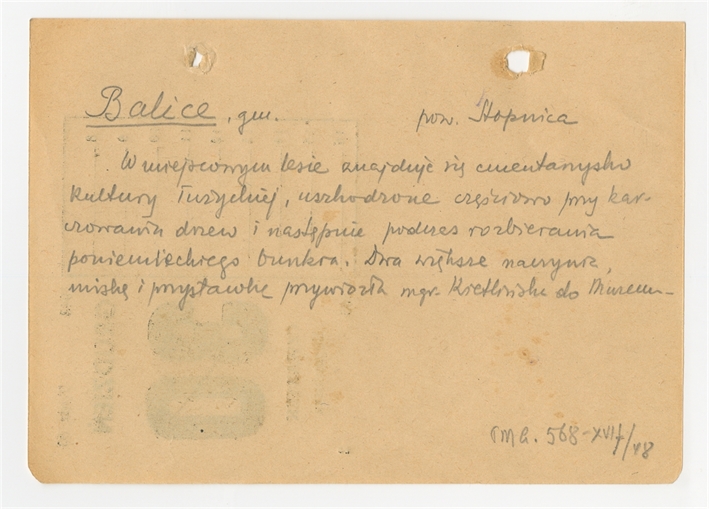 Balice, gm. pow. Stopnica
W miejscowym lesie znajduje się cmentarzysko
kultury łużyckiej, uszkodzone częściowo przy kar-
czowaniu drzew i następnie podczas rozbierania
poniemieckiego bunkra. Dwa większe naczynia,
miskę i przystawkę przywiozła mgr. Kietlińska do Muzeum
PMA. 568-XVII/48